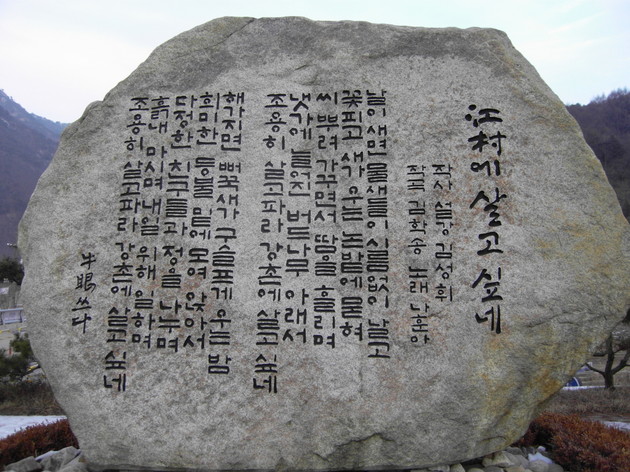 江村에 살고 싶네
작사 설강 김성휘
작곡 김학송 노래 나훈아
날이 새면 물새들이 시름없이 날고
꽃피고 새가 우는 논밭에 묻혀
씨 뿌려 가꾸면서 땀을 흘리며
냇가에 늘어진 버드나무 아래서
조용히 살고파라 강촌에 살고 싶네
해가지면 뻐꾹새가 구슬프게 우는 밤
희미한 등불 밑에 모여 앉아서
다정한 친구들과 정을 나누며
흙내 마시며 내일 위해 일하며
조용히 살고파라 강촌에 살고 싶네
牛眠 쓰다